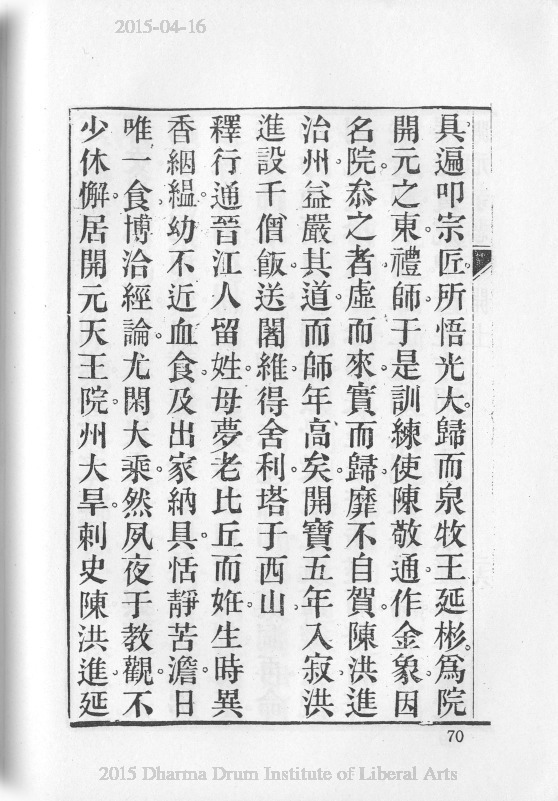 2015-04-16
具遍叩宗匠。所悟光大。歸而泉牧王延彬。爲院
開元之東。禮師于是訓練使陳敬通。作金象。因
名院。叅之者。虛而來。實而歸。靡不自賀。陳洪進
治州。益嚴其道。而師年高矣。開寶五年入寂。洪
進設千僧飯。送闍維。得舍利。塔于西山。
釋行通晉江人。留姓。母夢老比丘而姙。生時異
香絪縕。幼不近血食。及出家納具。恬靜苦澹。日
唯一食。博洽經論。尤閑大乘。然夙夜于教觀。不
少休懈。居開元天王院。州大旱。刺史陳洪進。延
70
2015 Dharma Drum Institute of Liberal Arts